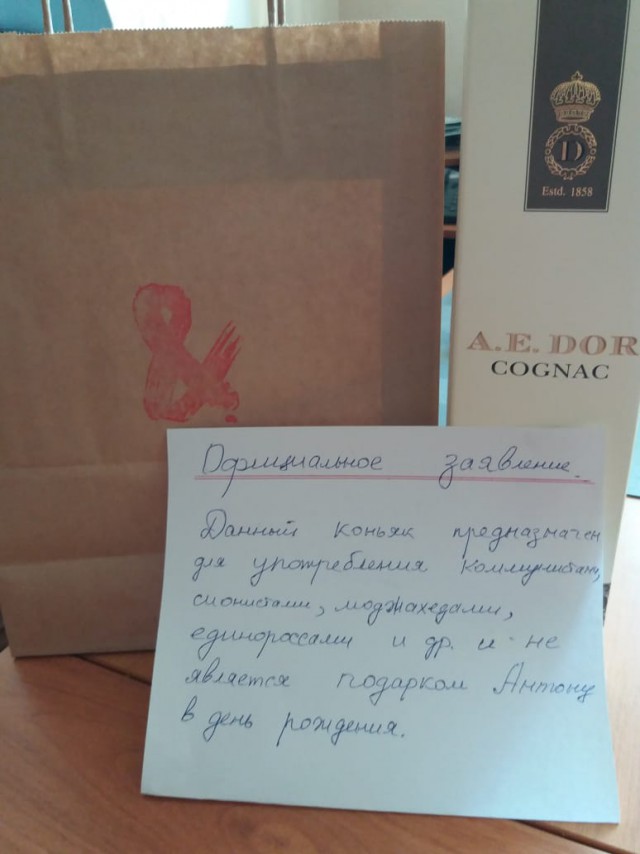 &
D
Estd. 1858
A.E. DOR
COGNAC
Официальное заявление.
Данный коньяк предназначен
для употребления коммунистами,
сионистами, моджахедами,
единороссами и др. и не
является подарком Антону
в день рождения.